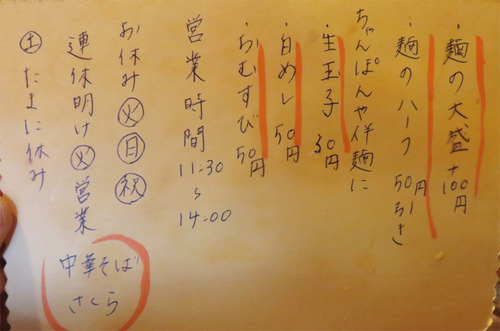 ・麺の大盛+100円
・麺のハーフ 50円引き
ちゃんぽんや伴麺に
・生玉子 30円
・白めし 50円
・おむすび 50円
営業時間 11:30~14:00
お休み 火 日 祝
連休明け火営業
土 たまに休み
中華そば
さくら